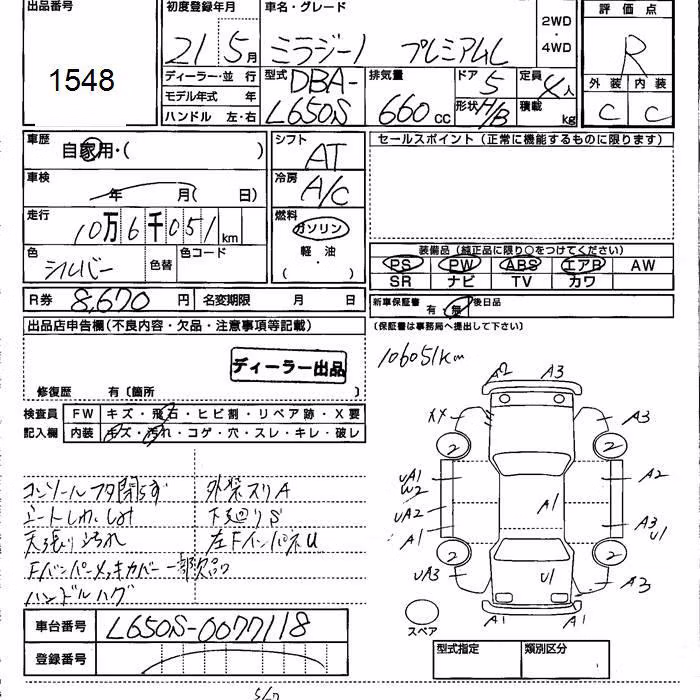 出品番号
1548
初度登録年月
21 5月
車名・グレード
ミラジーノ プレミアムL
2WD
・
4WD
評価点
R
外装 内装
C C
ディーラー・並行
モデル年式 年
ハンドル 左・右
型式
DBA-
L650S
排気量
660 cc
ドア
5
形状 H/B
定員
4人
積載
kg
車歴
自家用・( )
シフト
AT
車検
年 月( 日)
冷房
A/C
走行
10万6千051 km
燃料
ガソリン
軽・油
( ・ )
色
シルバー
色替
色コード
R券 8,670円 名変期限 月 日
セールスポイント(正常に機能するものに限ります)
装備品(純正品に限り○をつけてください)
PS PW ABS エアB AW
SR ナビ TV カワ
新車保証書 有 無 後日品
(保証書は事務局へ提出して下さい)
出品店申告欄(不良内容・欠品・注意事項等記載)
ディーラー出品
修復歴 有〔箇所 〕
検査員
記入欄
FW キズ・飛石・ヒビ割・リペア跡・X要
内装 キズ・汚れ・コゲ・穴・スレ・キレ・破レ
コンソールフタ閉らず 外装スリA
シートしわ、しみ 下廻りS
天張り汚れ 左FインパネU
Fバンパーメッキカバー一部欠品
ハンドルハゲ
車台番号 L650S-0077118
登録番号
106051km
A2 A3
XX A3
2 2
UA1
W2
A2
UA2
A1
A1
A3
U1
2 2
UA3
U1
A3
A1 A1
スペア
型式指定 類別区分